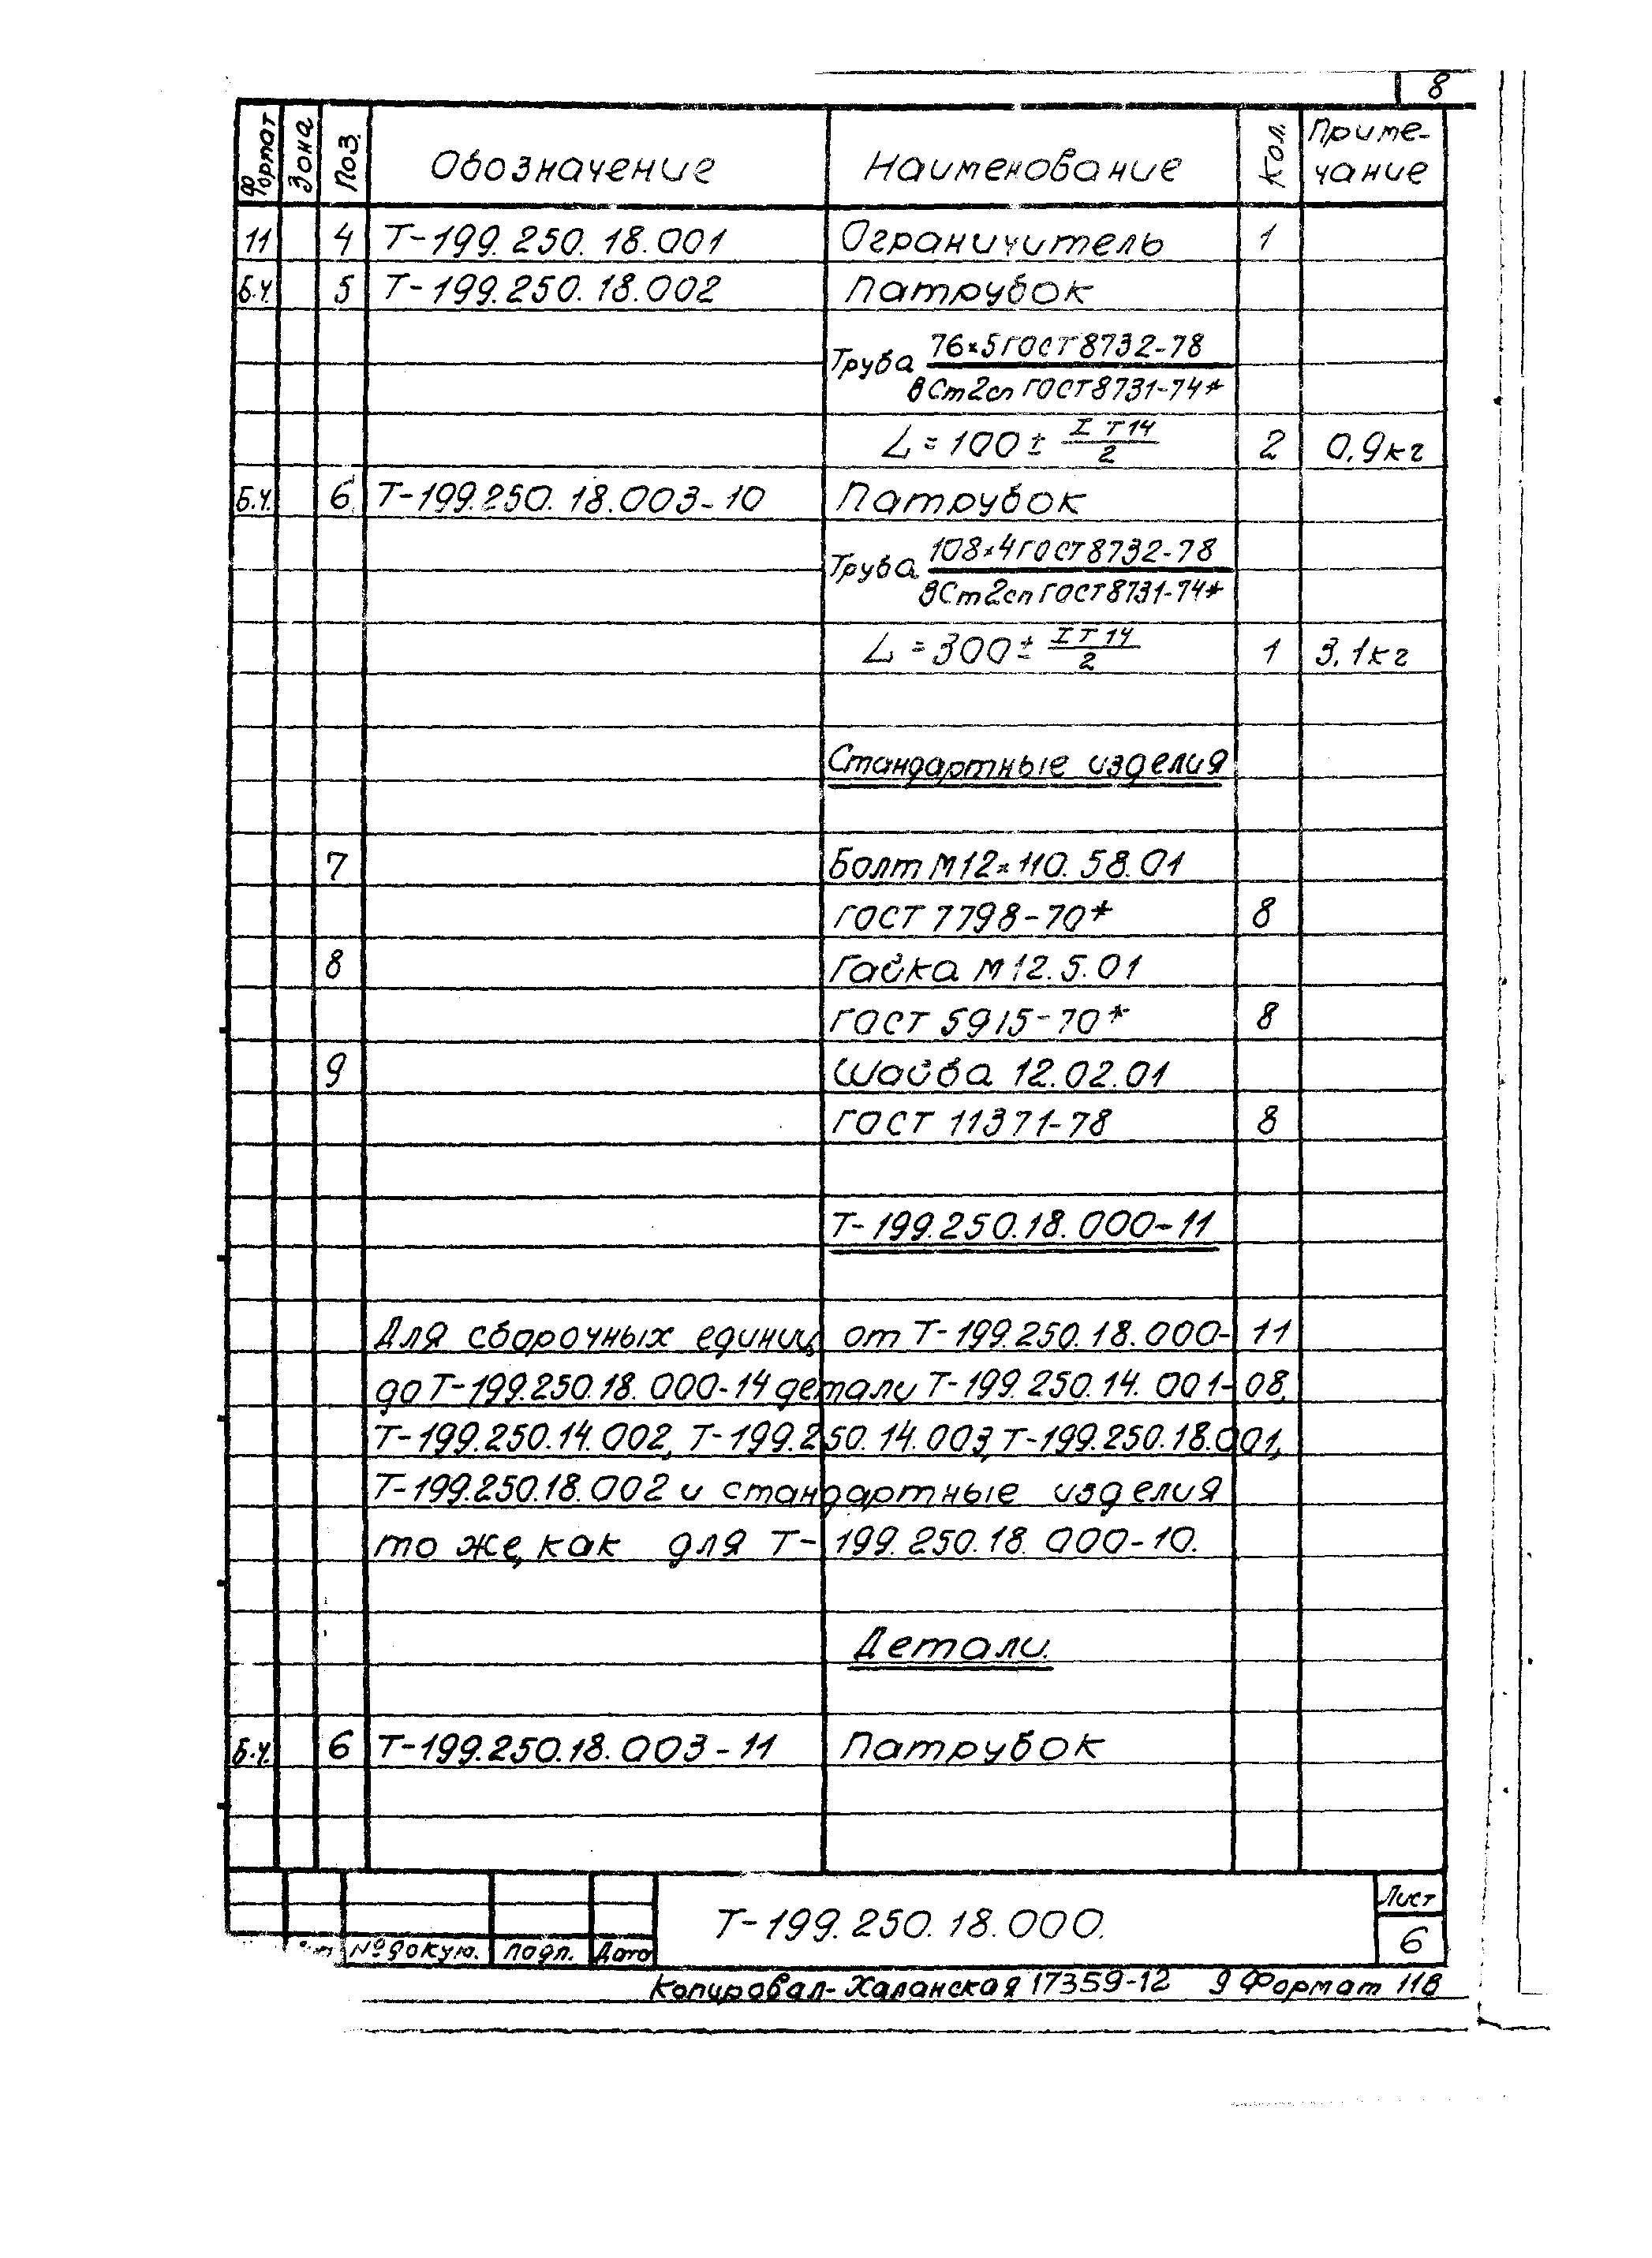 8
Формат Зона Поз. Обозначение Наименование Кол. Приме-
чание
11 4 Т-199.250.18.001 Ограничитель 1
Б.Ч. 5 Т-199.250.18.002 Патрубок
Труба 76×5 ГОСТ 8732-78
ВСт2сп ГОСТ 8731-74*
L = 100 ± IT14/2 2 0,9кг
Б.Ч. 6 Т-199.250.18.003-10 Патрубок
Труба 108×4 ГОСТ 8732-78
ВСт2сп ГОСТ 8731-74*
L = 300 ± IT14/2 1 3,1кг
Стандартные изделия
7 Болт М12×110.58.01
ГОСТ 7798-70* 8
8 Гайка М12.5.01
ГОСТ 5915-70* 8
9 Шайба 12.02.01
ГОСТ 11371-78 8
Т-199.250.18.000-11
Для сборочных единиц от Т-199.250.18.000-11
до Т-199.250.18.000-14 детали Т-199.250.14.001-08,
Т-199.250.14.002, Т-199.250.14.003, Т-199.250.18.001,
Т-199.250.18.002 и стандартные изделия
то же, как для Т-199.250.18.000-10.
Детали.
Б.Ч. 6 Т-199.250.18.003-11 Патрубок
Т-199.250.18.000.
Лист
6
№ докум. Подп. Дата
Копировал-Халанская 17359-12 9 Формат 11В